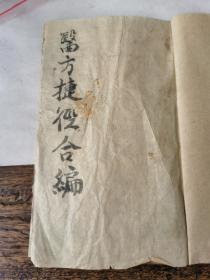 醫方捷徑合編